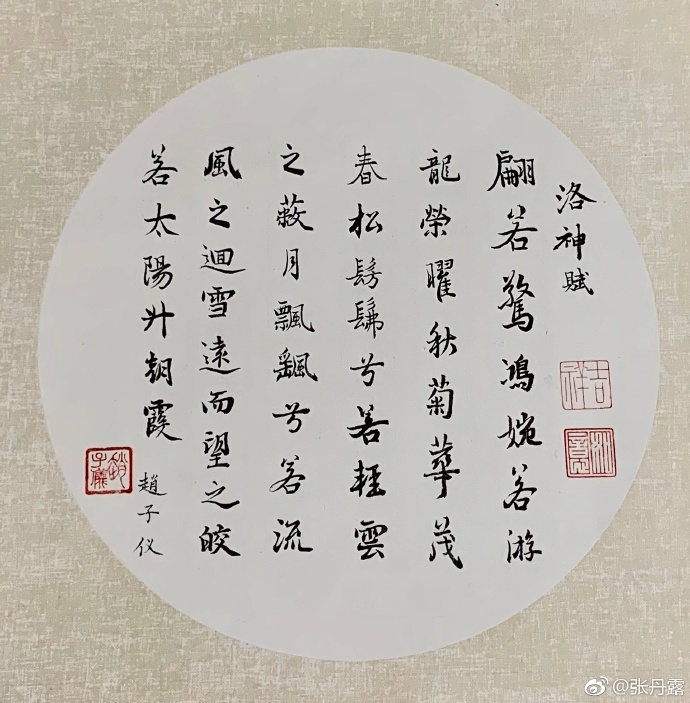 洛神賦
翩若驚鴻婉若游
龍榮曜秋菊華茂
春松髣髴兮若輕雲
之蔽月飄颻兮若流
風之迴雪遠而望之皎
若太陽升朝霞
趙子仪
吉祥
趙子儀
@张丹露